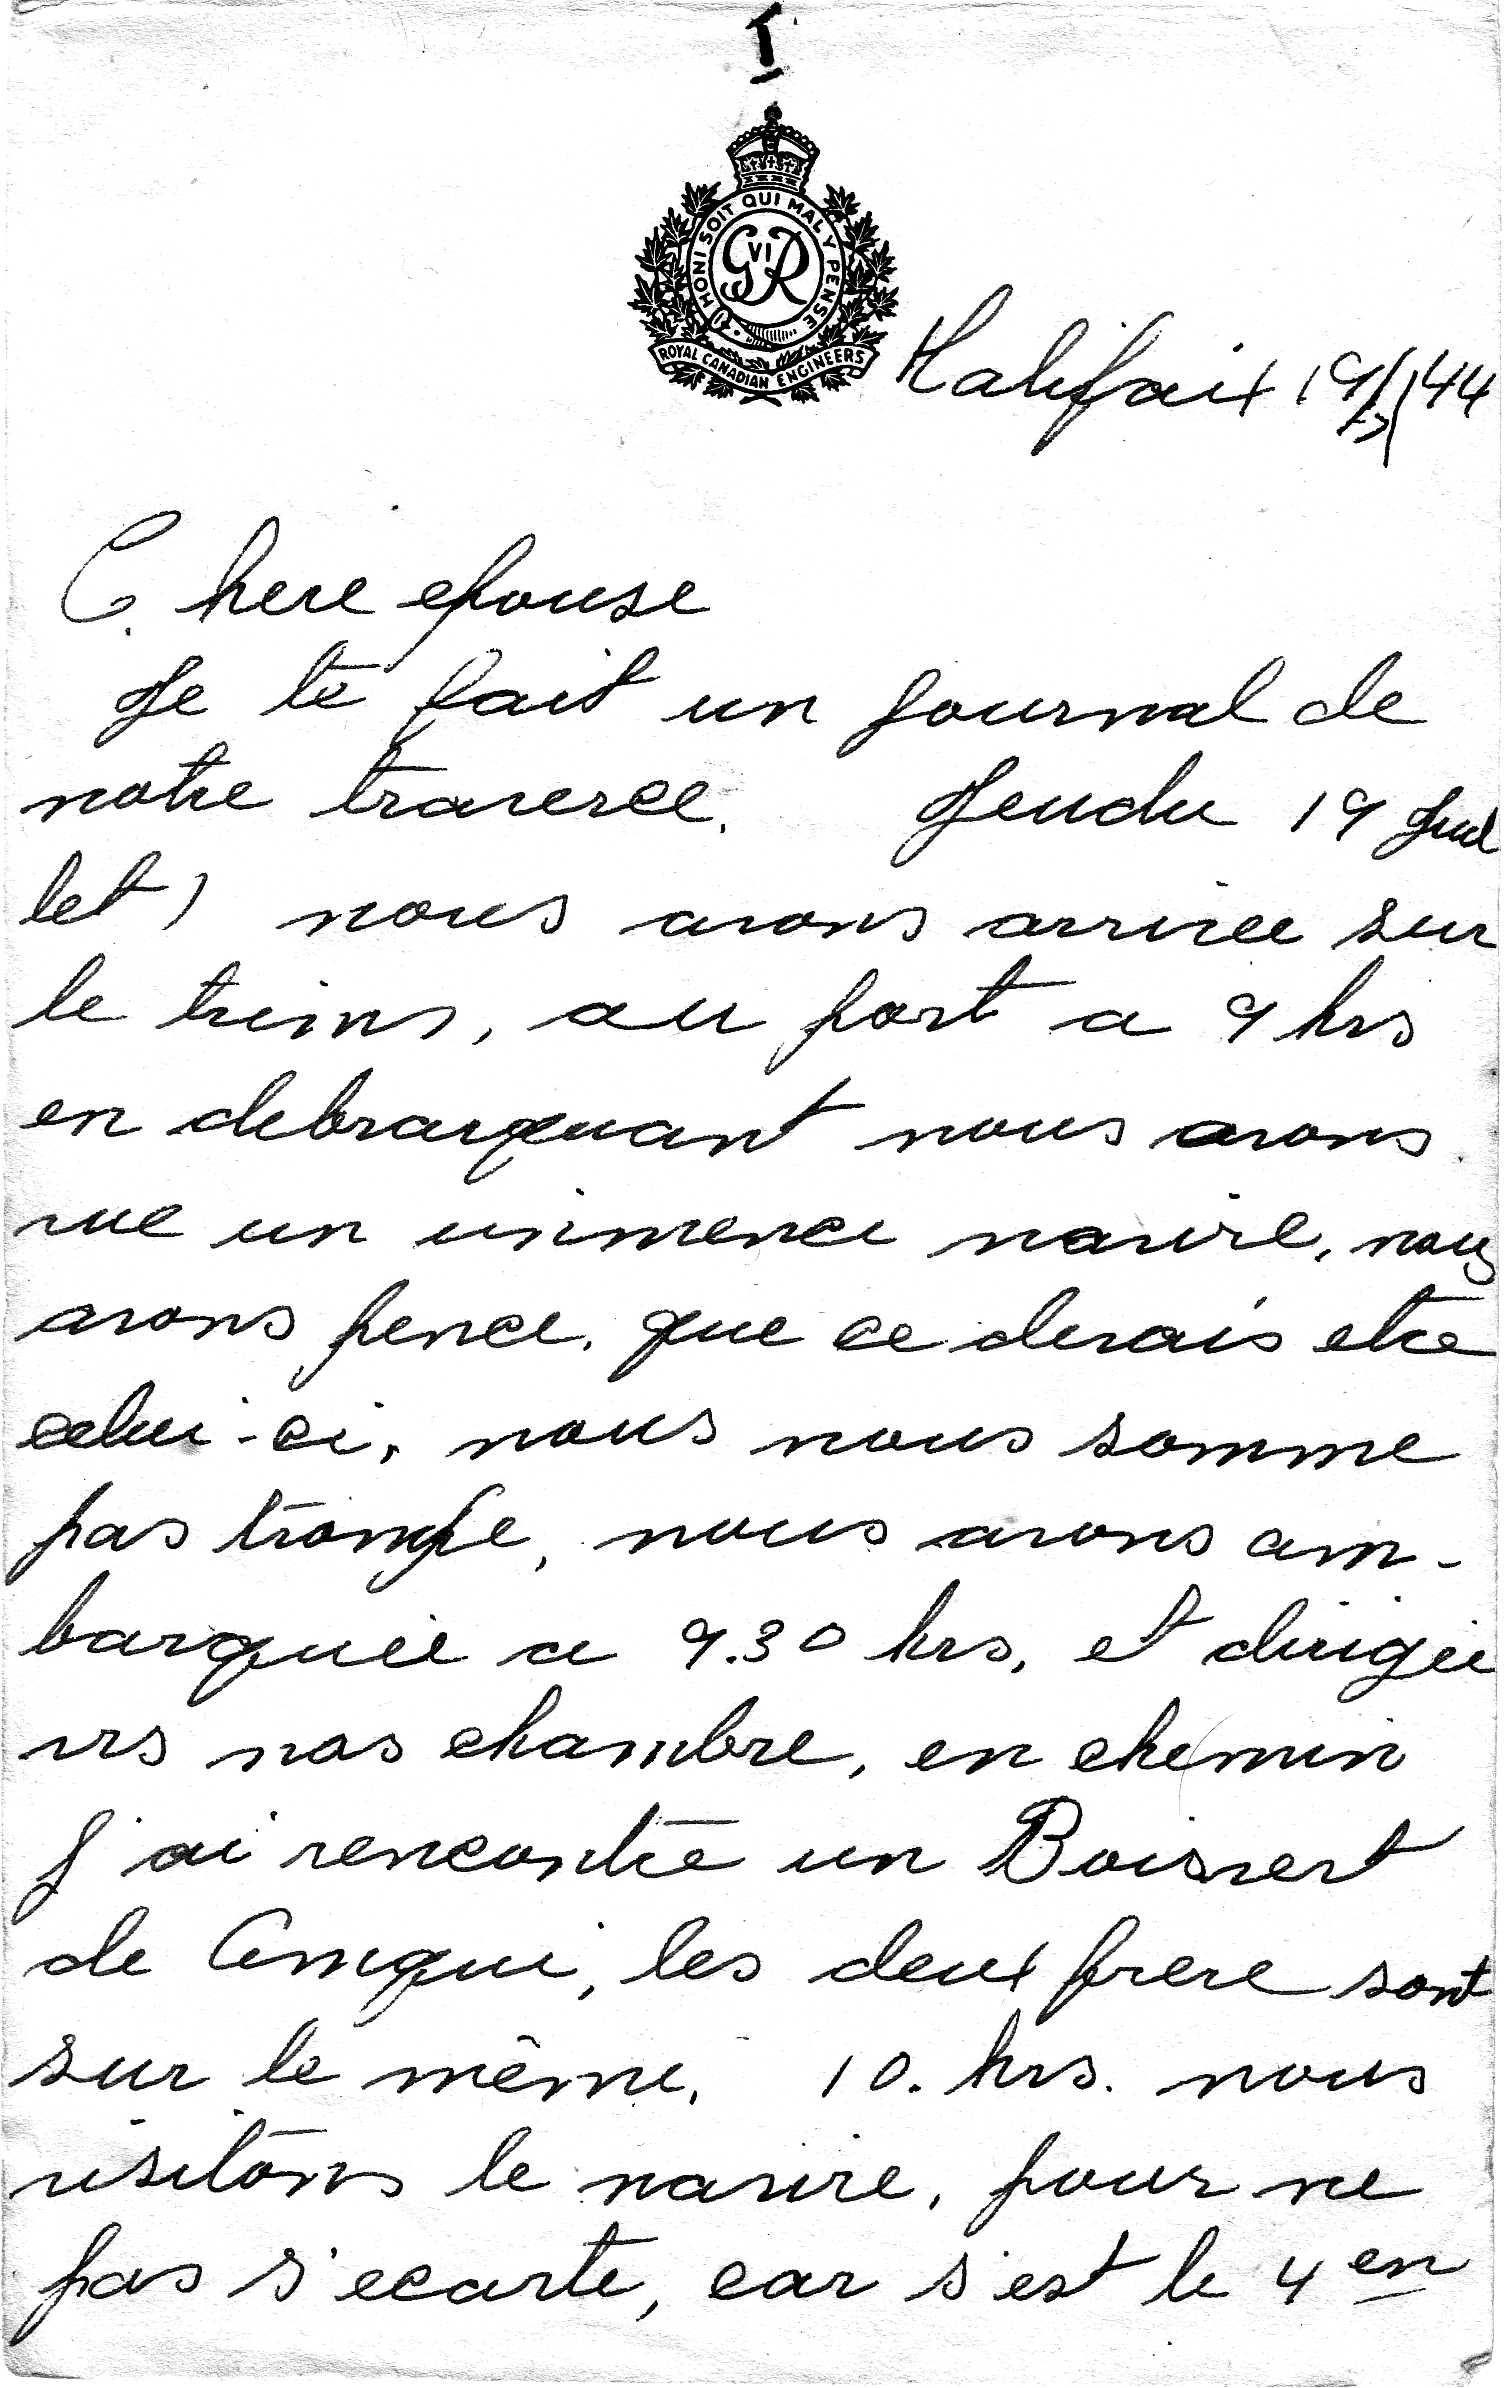 I
HONI SOIT QUI MAL Y PENSE
G VI R
ROYAL CANADIAN ENGINEERS
Halifaix 19/7/44
Chere epouse
Je te fait un journal de
notre traverce. Jeudu 19 Juil
let) nous avons arrivee sur
le treins, au port a 9 hrs
en debrarquant nous avons
vue un immence navire, nous
avons pence, que ce devais etre
celui-ci, nous nous somme
pas trompe, nous avons am-
barquée a 9.30 hrs, et dirigée
vrs nos chambre, en chemin
j'ai rencontre un Boisvert
de Amqui, les deux frere sont
sur le même. 10. hrs. nous
visitons le navire, pour ne
pas s'ecarte, car s'est le 4 en